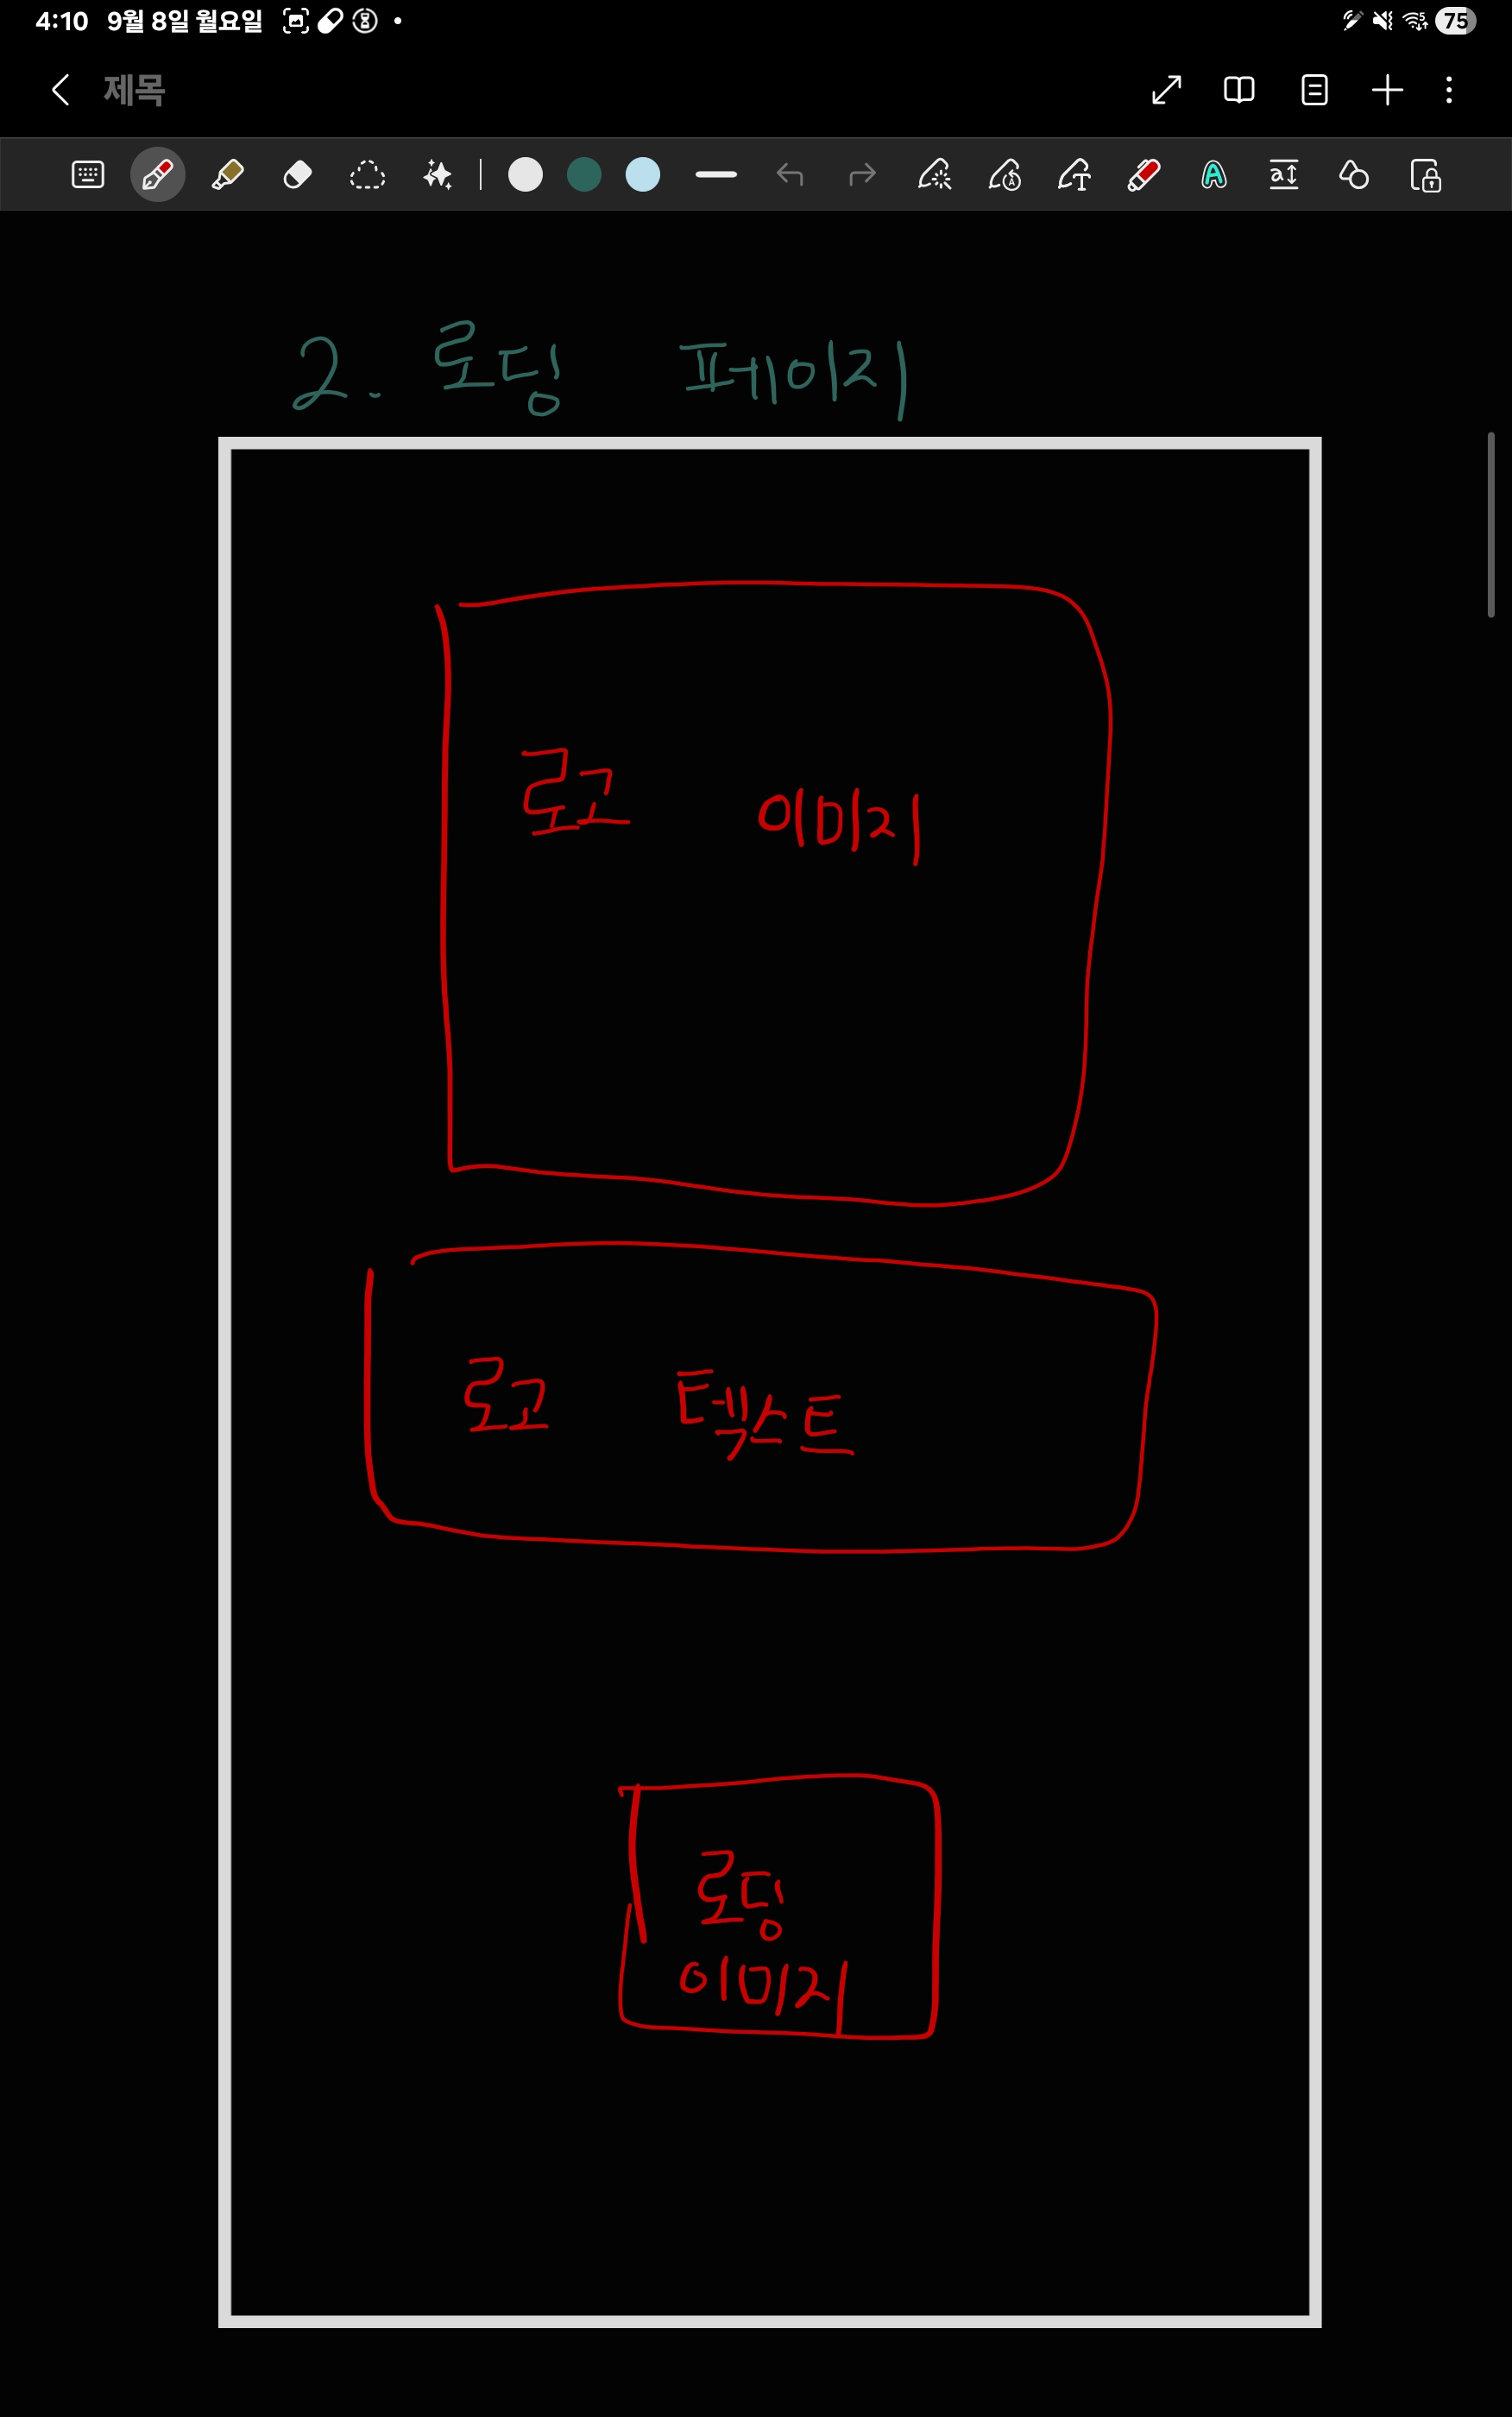 4:10 9월 8일 월요일
75
제목
2. 로딩 페이지
로고 이미지
로고 텍스트
로딩
이미지